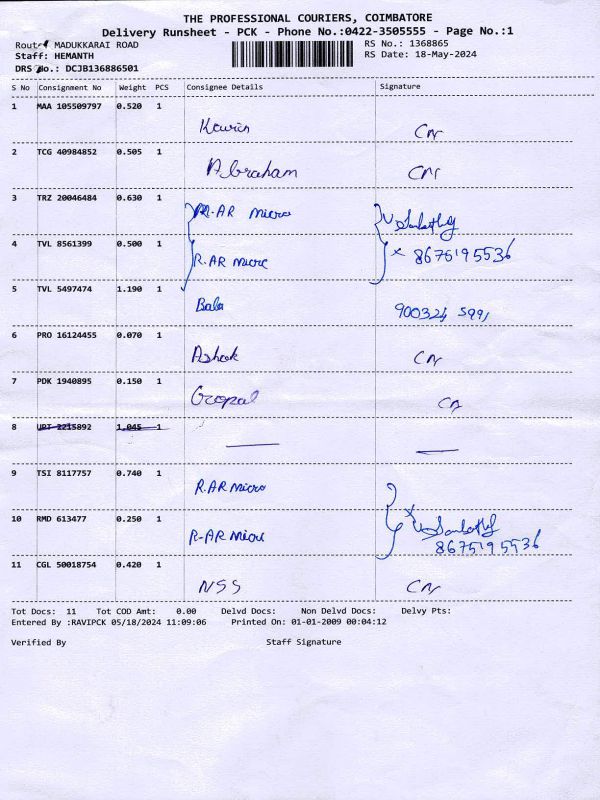 THE PROFESSIONAL COURIERS, COIMBATORE
Delivery Runsheet - PCK - Phone No.:0422-3505555 - Page No.:1
Route MADUKKARAI ROAD
RS No.: 1368865
Staff: HEMANTH
RS Date: 18-May-2024
DRS No.: DCJB136886501
S No Consignment No Weight PCS Consignee Details Signature
1 MAA 105509797 0.520 1
Kavin CN
2 TCG 40984852 0.505 1
Abraham CN
3 TRZ 20046484 0.630 1
R.AR Micro
4 TVL 8561399 0.500 1
R.AR Micro 8675195536
5 TVL 5497474 1.190 1
Bala 900324 5991
6 PRO 16124455 0.070 1
Ashok CN
7 PDK 1940895 0.150 1
Gopal CN
8 UPT 2215892 1.045 1
9 TSI 8117757 0.740 1
R.AR Micro
10 RMD 613477 0.250 1
R-AR Micro 8675195536
11 CGL 50018754 0.420 1
NSS CN
Tot Docs: 11 Tot COD Amt: 0.00 Delvd Docs: Non Delvd Docs: Delvy Pts:
Entered By :RAVIPCK 05/18/2024 11:09:06 Printed On: 01-01-2009 00:04:12
Verified By Staff Signature